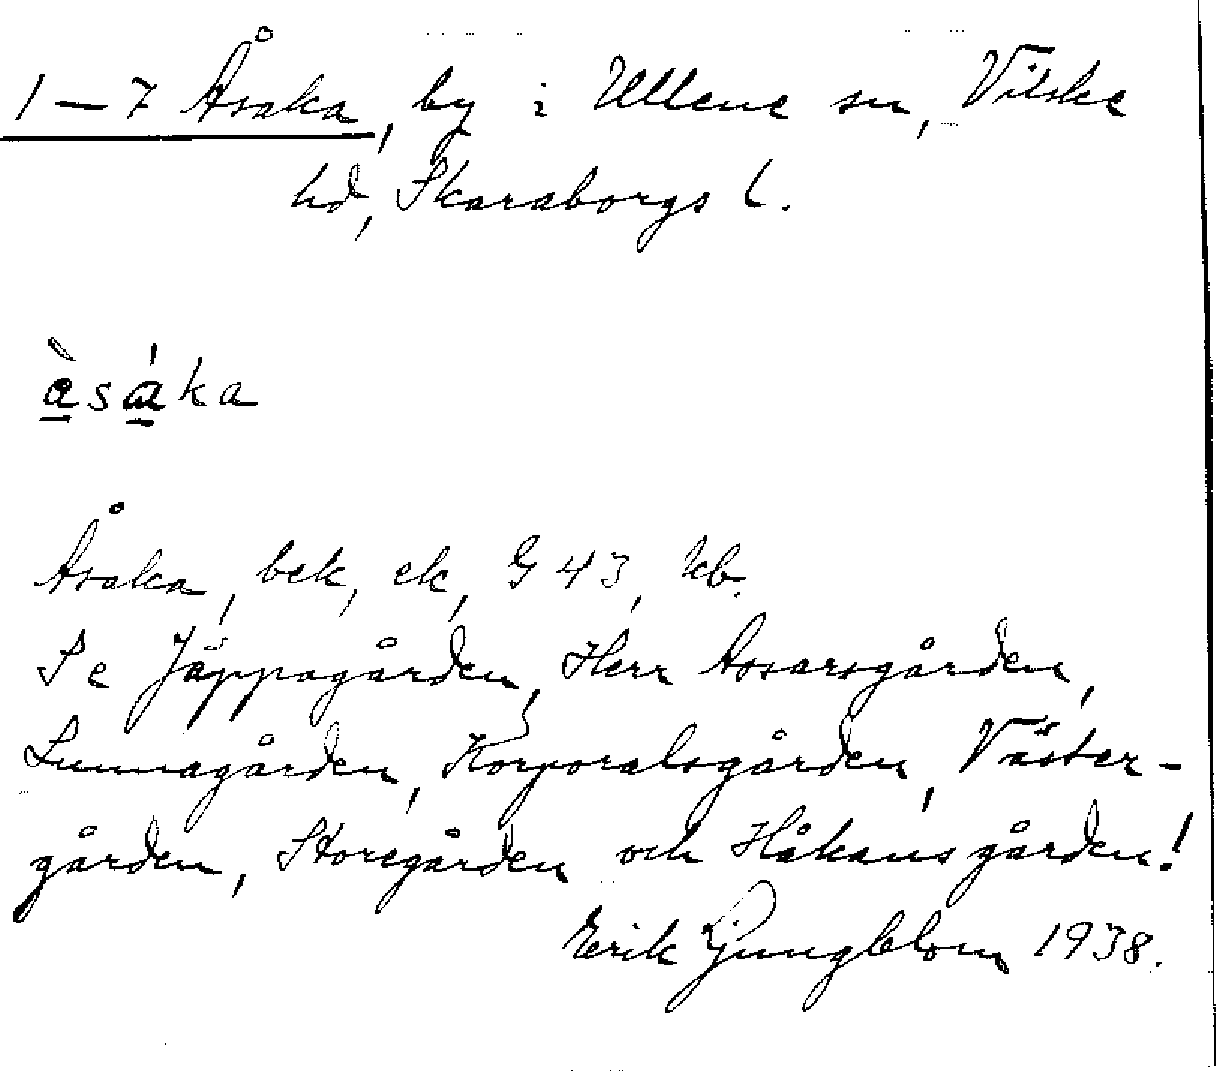 1–7 Åsaka, by i Ullene sn, Vilske
hd, Skaraborgs l.
àsáka
Åsaka, bek, ek, G 43, kb.
Se Jäppagården, Herr Assarsgården,
Lunnagården, Korporalsgården, Väster-
gården, Storegården och Håkansgården!
Erik Ljungblom 1938.